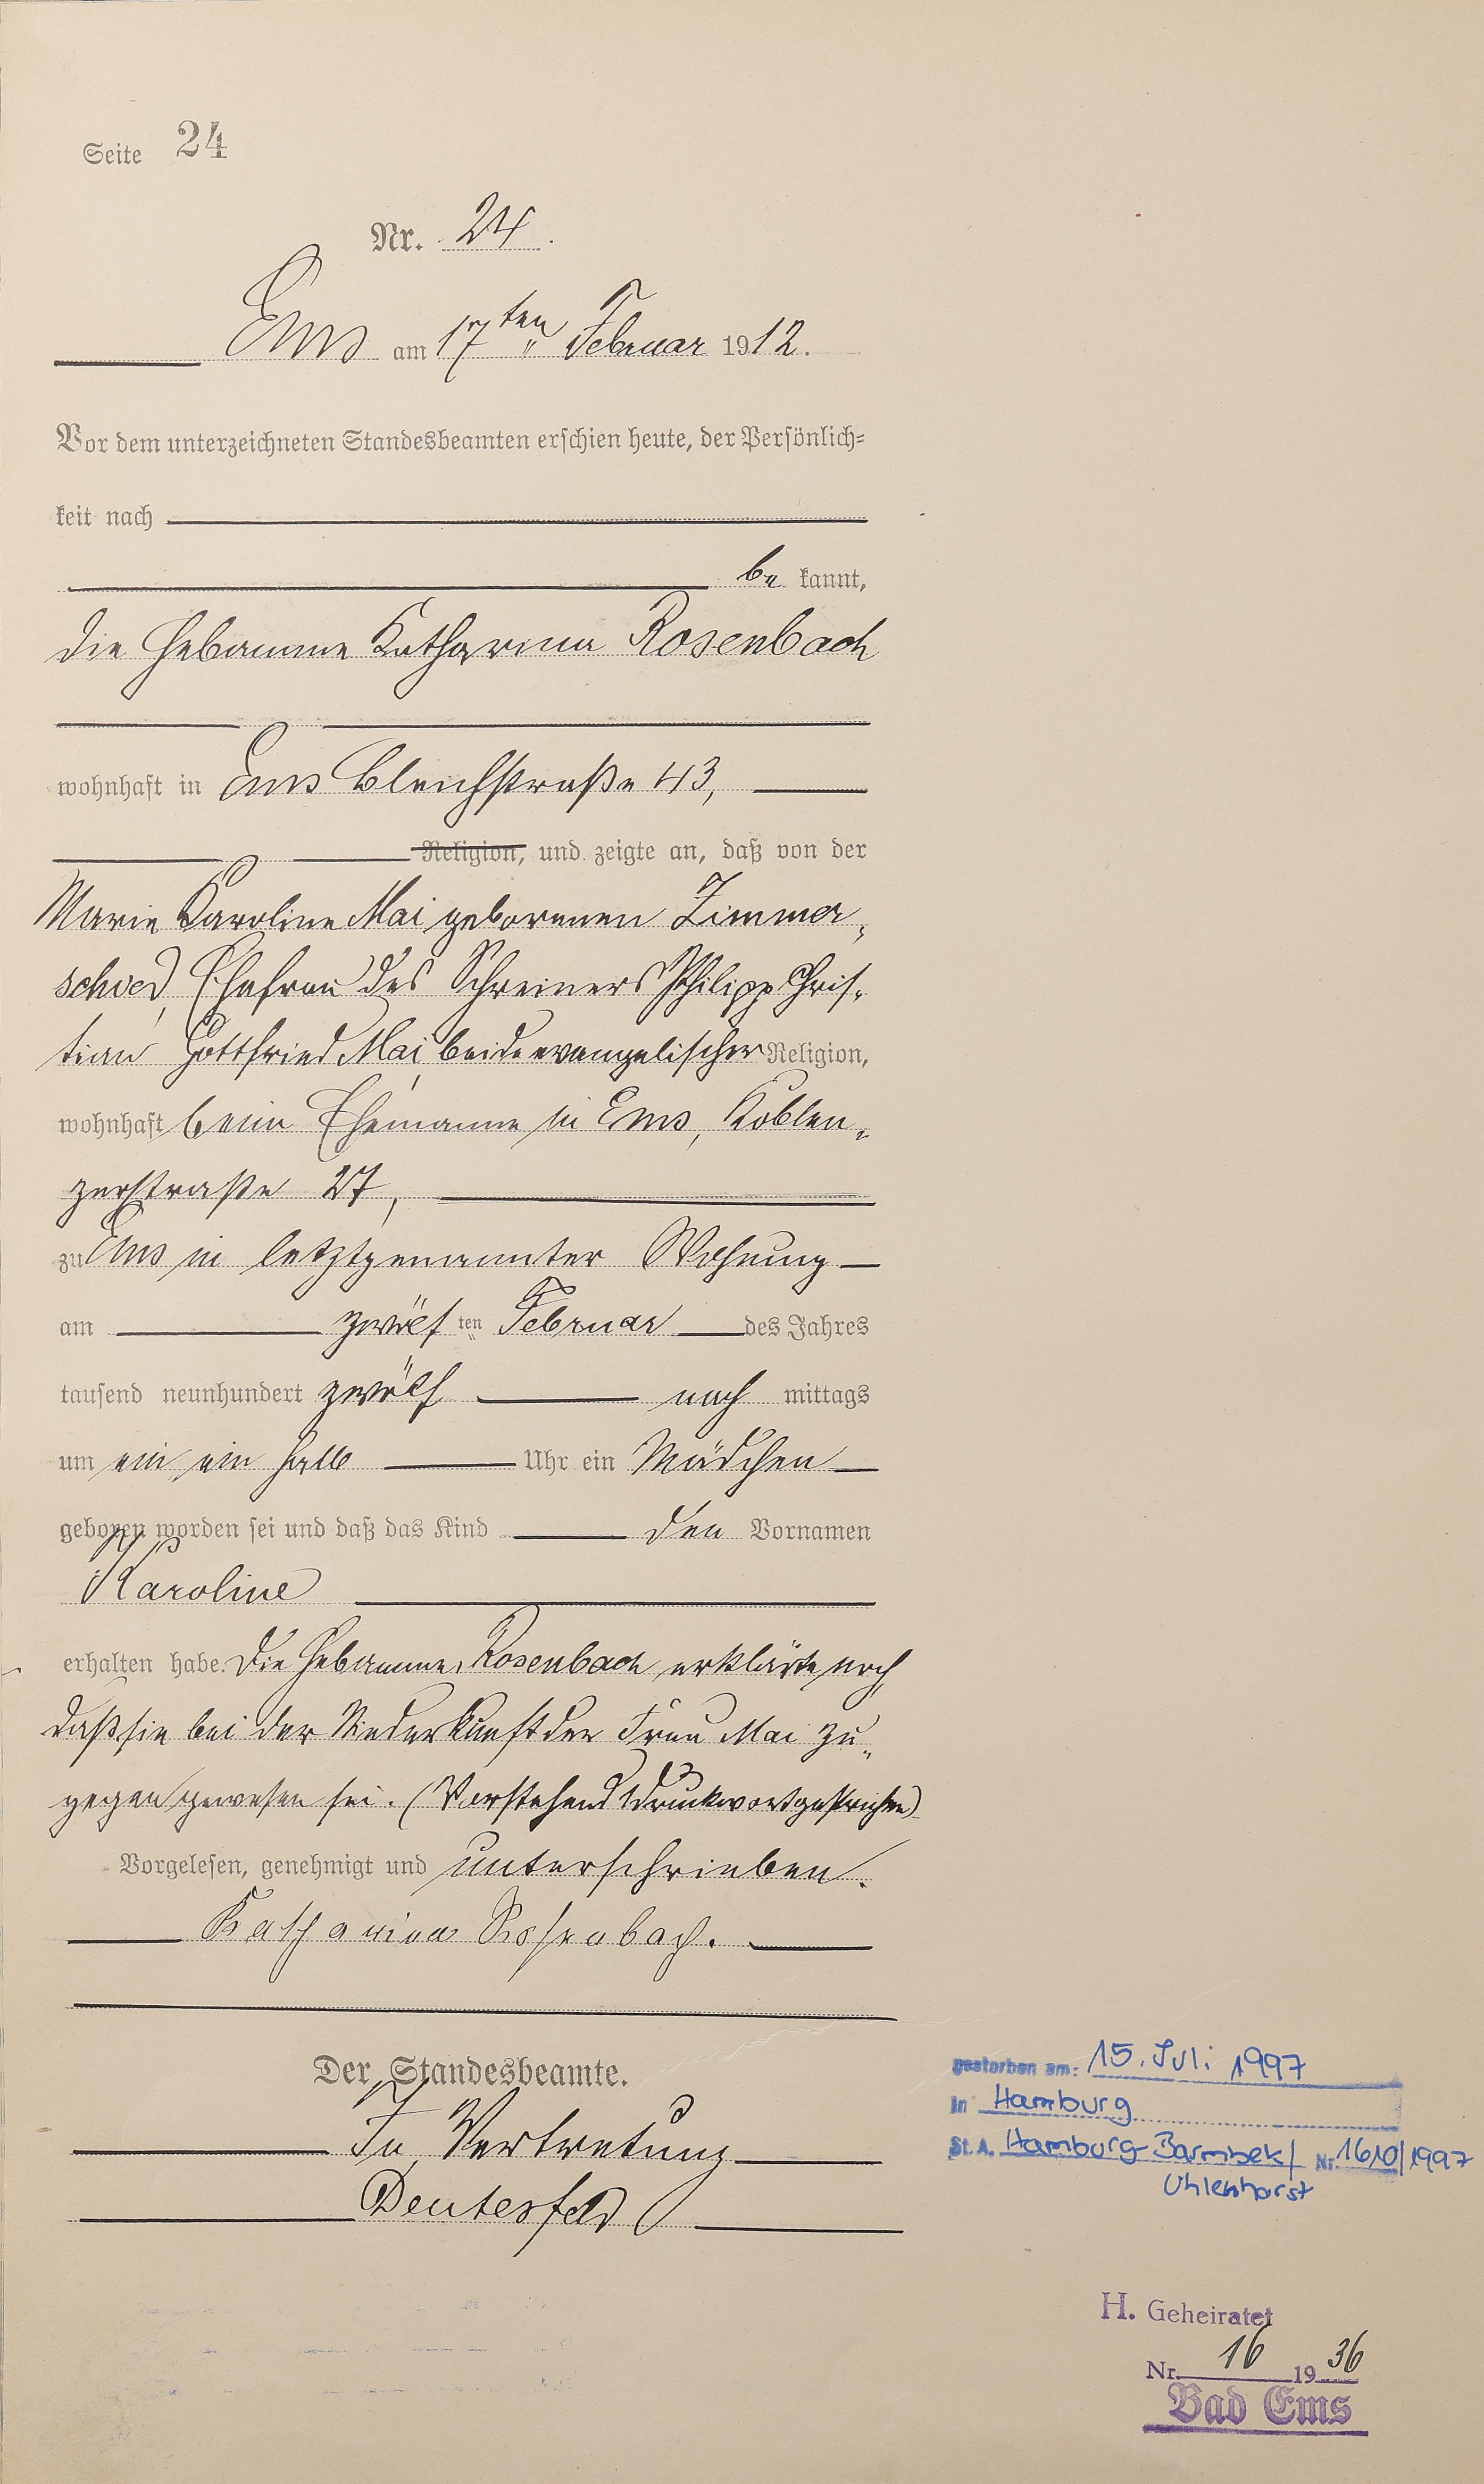 Seite 24
Nr. 24.
Ems am 17ten Februar 1912.
Vor dem unterzeichneten Standesbeamten erschien heute, der Persönlich-
keit nach
be kannt,
die Hebamme Katharina Rosenbach
wohnhaft in Ems Bleichstraße 43,
Religion, und zeigte an, daß von der
Marie Karoline Mai geborenen Zimmer-
schied, Ehefrau des Schreiners Philipp Chris-
tian Gottfried Mai, beide evangelischer Religion,
wohnhaft beim Ehemanne in Ems, Koblen-
zerstraße 27,
zu Ems in letztgenannter Wohnung
am zwölf ten Februar des Jahres
tausend neunhundert zwölf nach mittags
um ein ein halb Uhr ein Mädchen
geboren worden sei und daß das Kind den Vornamen
Karoline
erhalten habe. Die Hebamme Rosenbach erklärte noch,
daß sie bei der Niederkunft der Frau Mai zu-
gegen gewesen sei. (Vorstehend 1 Druckwort gestrichen)
Vorgelesen, genehmigt und unterschrieben.
Katharina Rosenbach.
Der Standesbeamte.
In Vertretung
gestorben am: 15. Juli 1997
in Hamburg
St. A. Hamburg-Barmbek/ Nr. 1610/1997
Uhlenhorst
H. Geheiratet
Nr. 16 1936
Bad Ems